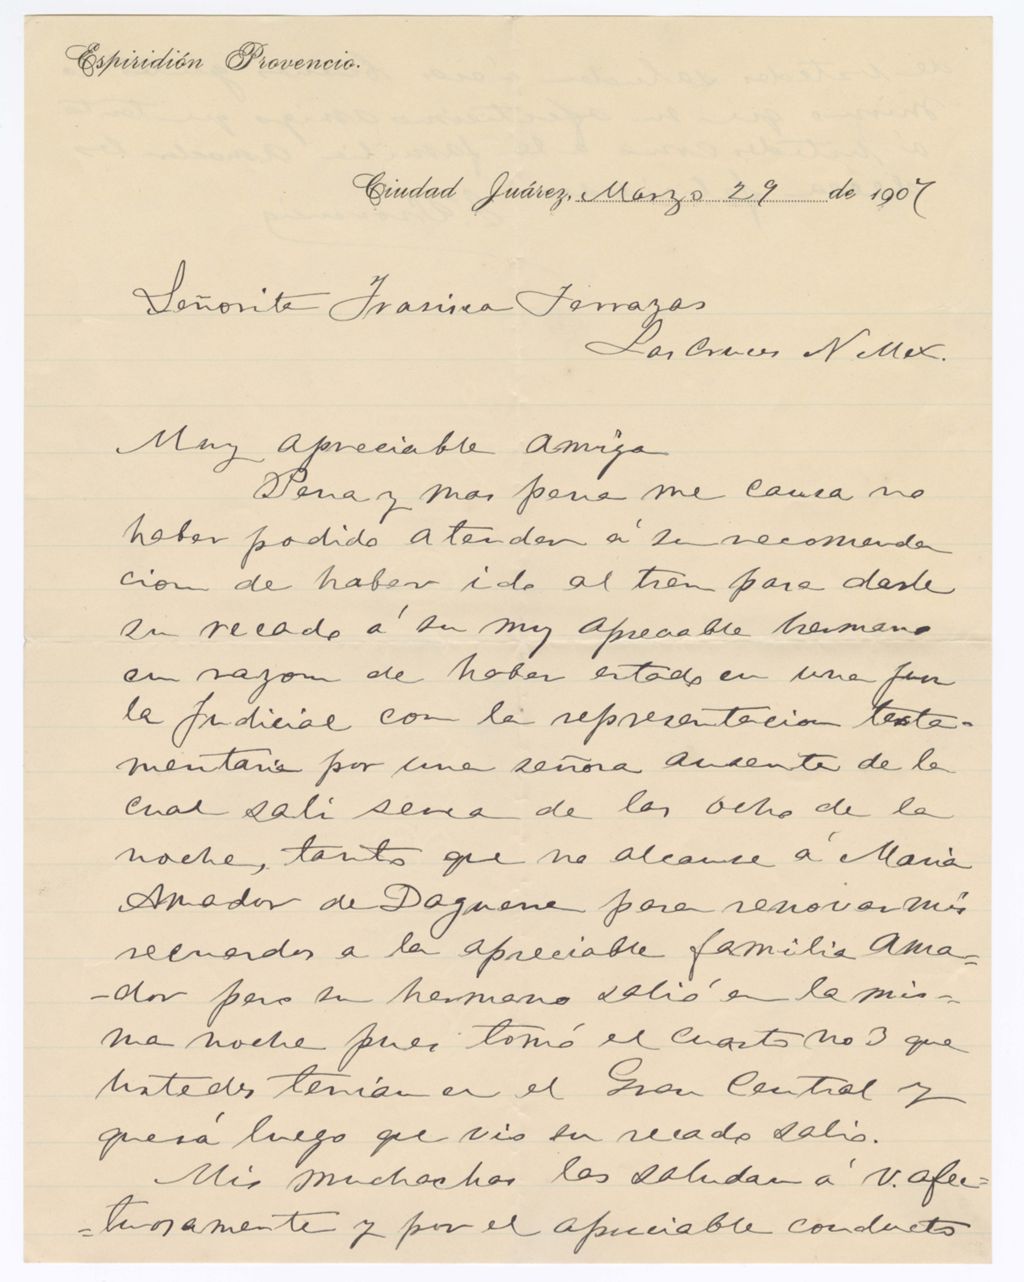 Espiridión Provencio.
Ciudad Juárez, Marzo 29 de 1907
Señorita Terrazas
Las Cruces N Mex.
Muy apreciable amiga
Pena y mas pena me causa no
haber podido atender á su recomenda
cion de haber ido al tren para darle
su recado á su muy apreciable hermano
en razon de haber estado en una jun
ta Judicial con la representacion testa-
mentaria por una señora ausente de la
cual sali serca de las ocho de la
noche, tanto que no alcanse á Maria
Amador de Daguerre para renovar mis
recuerdos a la apreciable familia Ama-
-dor pero su hermano salió en la mis-
ma noche pues tomó el cuarto no 3 que
Ustedes tenian en el Gran Central y
quesá luego que vio su recado salio.
Mis muchachas las saludan á V. afec=
=tuosamente y por el apreciable conducto